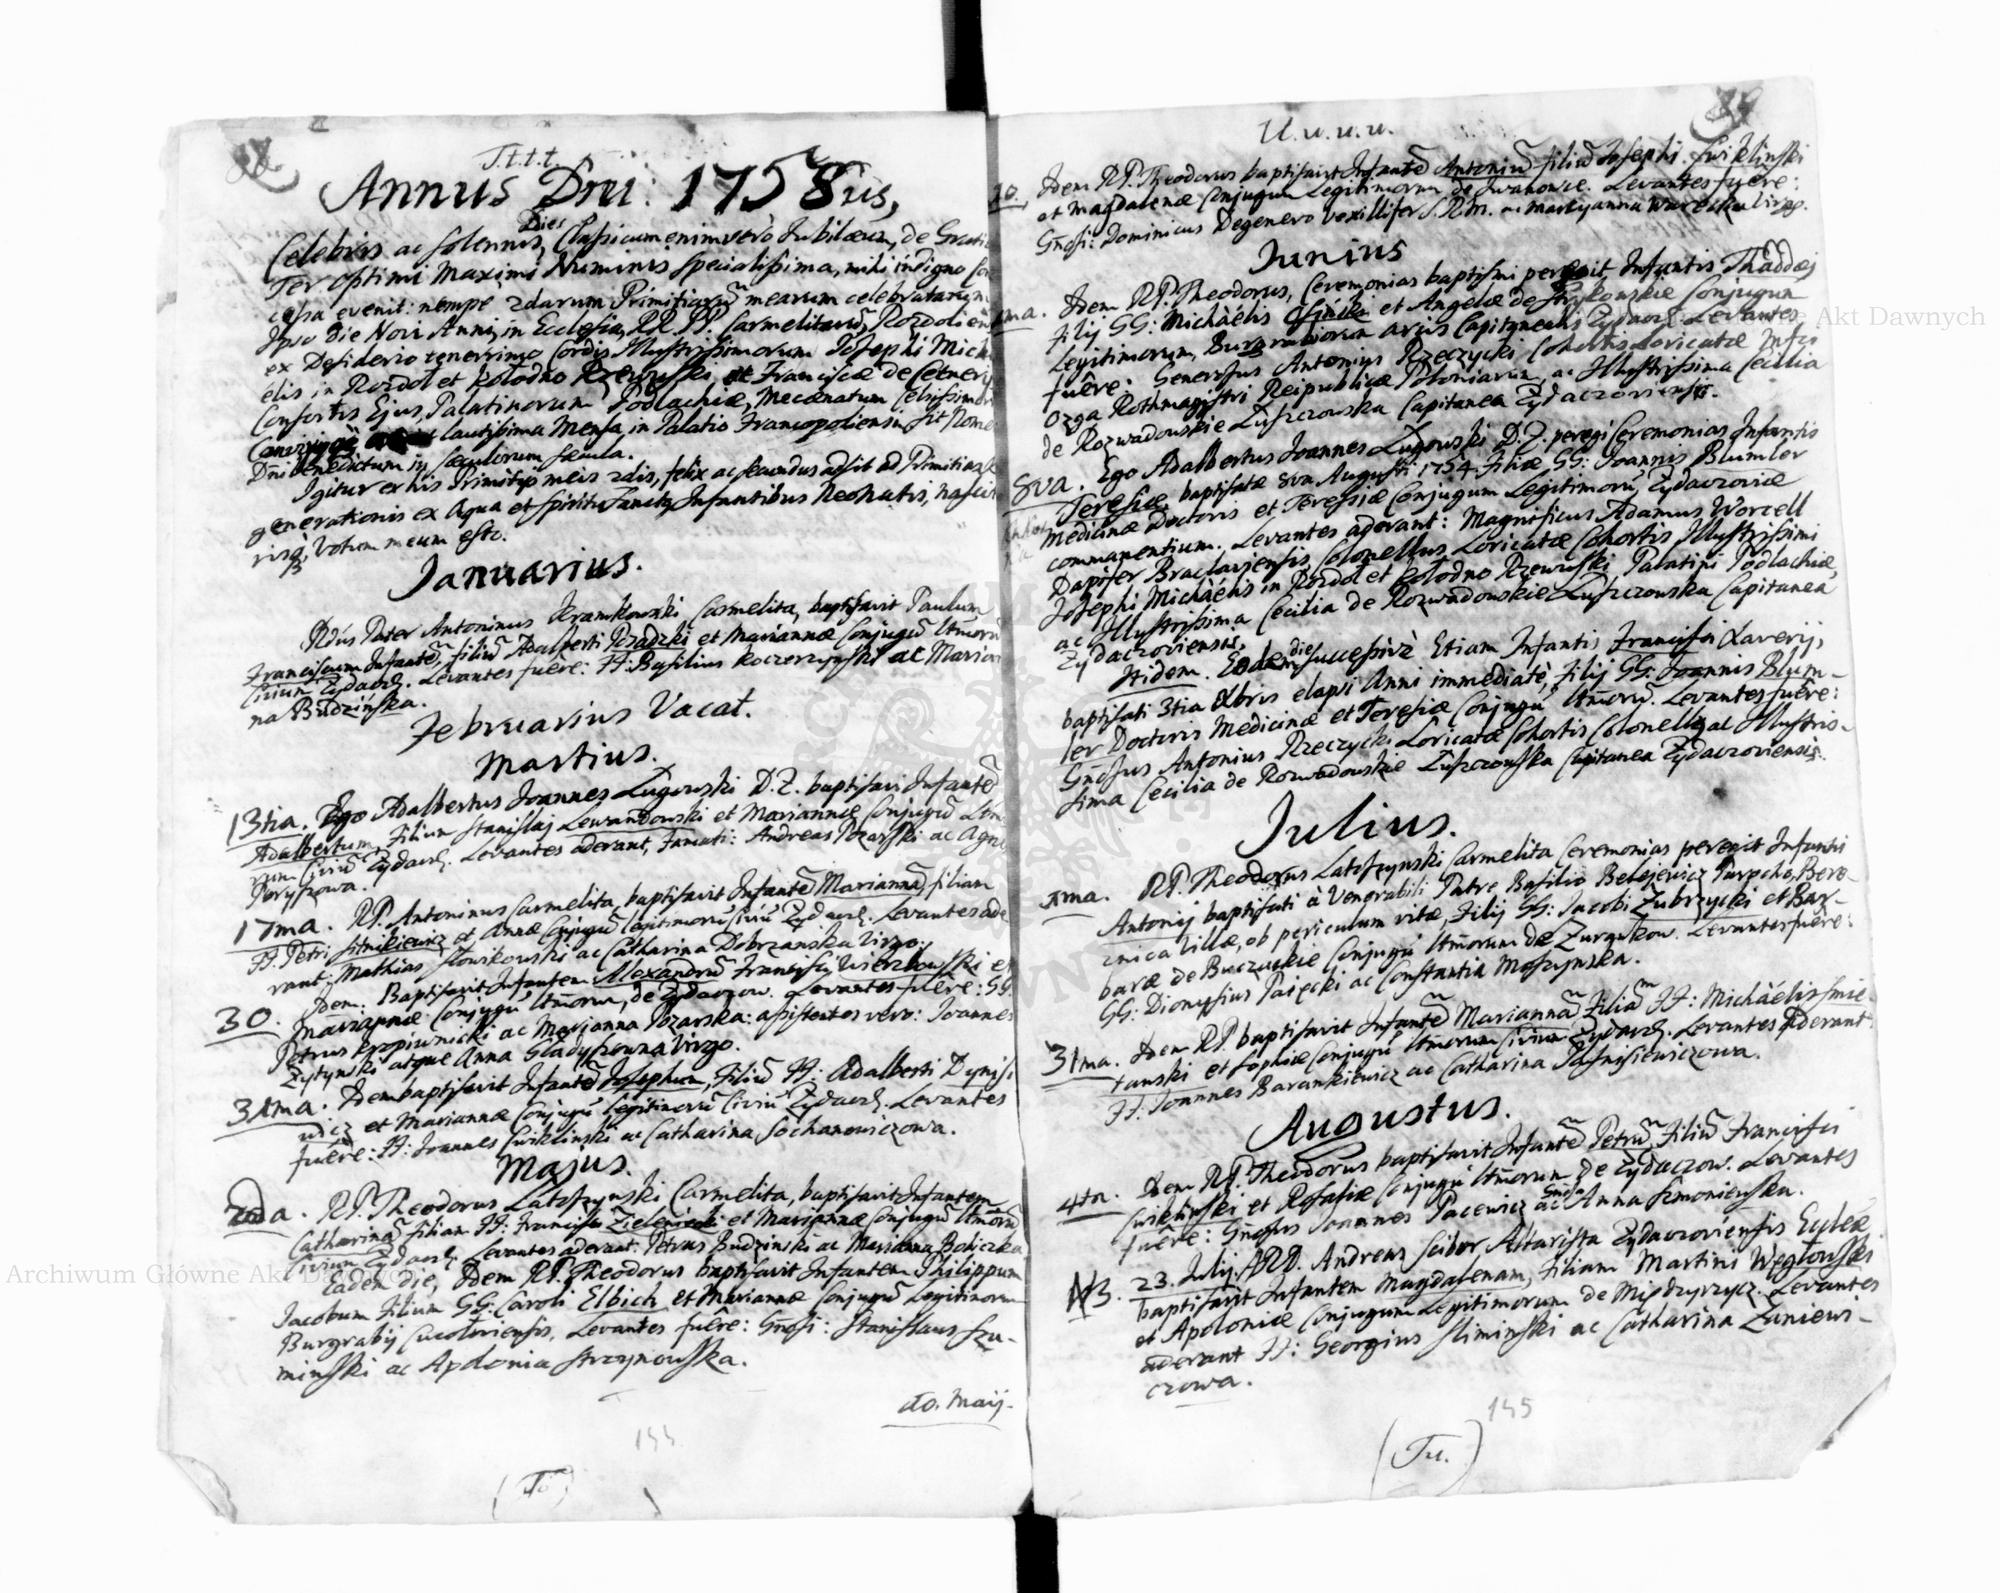 T.t.t.t.
Annus Dni: 1758us,
Dies
Celebris ac Solennis, Classicum enimverò Jubilæum, de Gratia
Ter Optimi Maximi Numinis specialissima, mihi indigno
cessa evenit: nempe 2darum Primitiarũ mearum celebratarum
Ipso die Novi Anni, in Ecclesia, RR. PP. Carmelitarũ, Rozdolien
ex Desiderio tenerrimo Cordis Illustrissimorum Josephi Micha
elis in Rozdol et Kolodno Rzewuski et Franciscæ de Cetnery
Consortis Ejus, Palatinorum Podlachiæ, Mecænatum Celsissimor
lautissima Mensa in Palatio Francopoliensi. Sit Nomen
Dni Benedictum in sæculorum sæcula.
Igitur ex his Primitijs meis 2dis, felix ac secundus adsit ad Primitias
generationis ex Aqua et Spiritu Sancto, Infantibus Neonatis,
Votum meum esto.
Januarius.
Rdus Pater Antoninus Kramkowski Carmelita, baptisavit Paulum
Franciscum Infantẽ, filiũ Adalberti Pozadzki et Mariannæ Conjugũ ltmorũ
Civium Zydacz. Levantes fuêre: FF: Basilius Koczerzynski ac Marian
na Budzińska.
Februarius Vacat.
Martius.
13tia. Ego Adalbertus Joannes Lugowski D.Z. baptisavi Infantẽ
Adalbertum, Filium Stanislaj Lewandowski et Mariannæ Conjugũ Ltmo
rum Civiũ Zydacz. Levantes aderant, Famati: Andreas Pozarski ac Agne
Poryszowa.
17ma. R.P. Antoninus Carmelita, baptisavit Infantẽ Mariannã, filiam
FF. Petri Sitnikiewicz et Annæ Conjugũ legitimorũ Civiũ Zydacz. Levantes ade
rant: Mathias Slowikowski ac Catharina Dobrzanska Virgo.
30. Idem. Baptisavit Infantem Alexandrũ Francisci Wierzbowski et
Mariannæ Conjugũ ltmorum, de Zydaczow. Levantes fuêre: GG.
Petrus Kropiwnicki ac Marjanna Pozarska: assistentes vero: Joannes
Zystynski atque Anna Gladyszowna Virgo.
31ma. Idem baptisavit Infantẽ Josephum, Filiũ FF: Adalberti Dynisi
wicz et Mariannæ Conjugũ legitimorũ Civiũ Zydacz. Levantes
fuêre: FF: Joannes Cwiklinski ac Catharina Sochanowiczowa.
Majus.
2da. R.P. Theodorus Latoszynski Carmelita, baptisavit Infantem
Catharinã filiam FF: Francisci Zieleniecki et Mariannæ Conjugũ ltmorũ
Civium Zydacz. Levantes aderant: Petrus Budzinski ac Marianna Boliczka
Eadem die, Idem R.P. Theodorus baptisavit Infantem Philippum
Jacobum Filium GG: Caroli Elbich et Mariannæ Conjugũ Legitimorum
Burgrabij Cucoloriensis, Levantes fuêre: Gnosi: Stanislaus Szu-
minski ac Apolonia Strzynowska.
10. Maij.
144
U.u.u.u.
10. Idem R.P. Theodorus baptisavit Infantẽ Antoniũ filiũ Josephi Cwiklinski
et Magdalenæ Conjugum Legitimorum de Iwanowce. Levantes fuêre:
Gnosi: Dominicus Degenero Vexillifer S.R.M. ac Marjyanna Warecka Virgo.
Junius
1ma. Idem R.P. Theodorus, Ceremonias baptismi peregit, Infantis Thaddæj
Filij GG: Michaëlis et Angelæ de Strykowskie Conjugum
Legitimorum, Burgrabiorum arcis Capitanealis Zydacz. Levantes
fuêre: Generosus Antonius Rzeczycki Cohortis Loricatæ
Ozga Rothmagistri Reipublicæ Poloniarum, ac Illustrissima Cecilia
de Rozwadowskie Luszczowska Capitanea Zydaczoviensis.
8va. Ego Adalbertus Joannes Lugowski D.Z. peregi Ceremonias Infantis
Teresiæ, baptisatæ 8va Augusti 1754. Filiæ GG: Joannis Blumler
Medicinæ Doctoris et Teresiæ Conjugum Legitimorũ, Zydaczoviæ
commanentium. Levantes aderant: Magnificus Adamus Worcell
Dapifer Braclaviensis, Colonellus Loricatæ Cohortis Illustrissimi
Josephi Michaëlis in Rozdol et Kolodno Rzewuski Palatini Podlachiæ,
ac Illustrissima Cecilia de Rozwadowskie Luszczowska Capitanea
Zydaczoviensis.
Itidem. Eadem die successivè Etiam Infantis Francisci Xaverij,
baptisati 3tia Xbris elapsi Anni immediatè, Filij GG: Joannis Blum-
ler Doctoris Medicinæ et Teresiæ Conjugũ ltmorũ. Levantes fuêre:
Gnosus Antonius Rzeczycki Loricatæ Cohortis Colonellus ac Illustris-
sima Cecilia de Rozwadowskie Luszczowska Capitanea Zydaczoviensis.
Julius.
R.P. Theodorus Latoszynski Carmelita Ceremonias peregit Infantis
Antonij baptisati à Venerabili Patre Basilio Belejewicz Parocho Bere-
znica Villæ, ob periculum vitæ, Filij GG: Jacobi Zubrzycki et Bar-
baræ de Buczackie Conjugũ ltmorum de Zurawkow. Levantes fuêre:
GG: Dionysius Paięcki ac Constantia Moszynska.
31ma. Idem R.P. baptisavit Infantẽ Mariannã Filiã FF: Michaëlis Smie-
tanski et Sophiæ Conjugũ ltmorum Civium Zydacz. Levantes aderant
FF: Joannes Barankiewicz ac Catharina Jasnisiewiczowa.
Augustus.
4ta. Idem R.P. Theodorus baptisavit Infantẽ Petrũ, Filiũ Francisci
Cwiklinski et Rosaliæ Conjugũ ltmorum de Zydaczow. Levantes
fuêre: Gnosus Joannes Pacewicz ac Gnosa Anna Szmoniewska.
NB. 23. Julij. A.R.D. Andreas Scibor, Altarista Zydaczoviensis Ecclæ
baptisavit Infantem Magdalenam, Filiam Martini Węglowski
et Apoloniæ Conjugum Legitimorum de Międzyrzycz. Levantes
aderant FF: Georgius Sliminski ac Catharina Zaniewi-
czowa.
145
(Tu.)
Archiwum Główne Akt Dawnych
Akt Dawnych